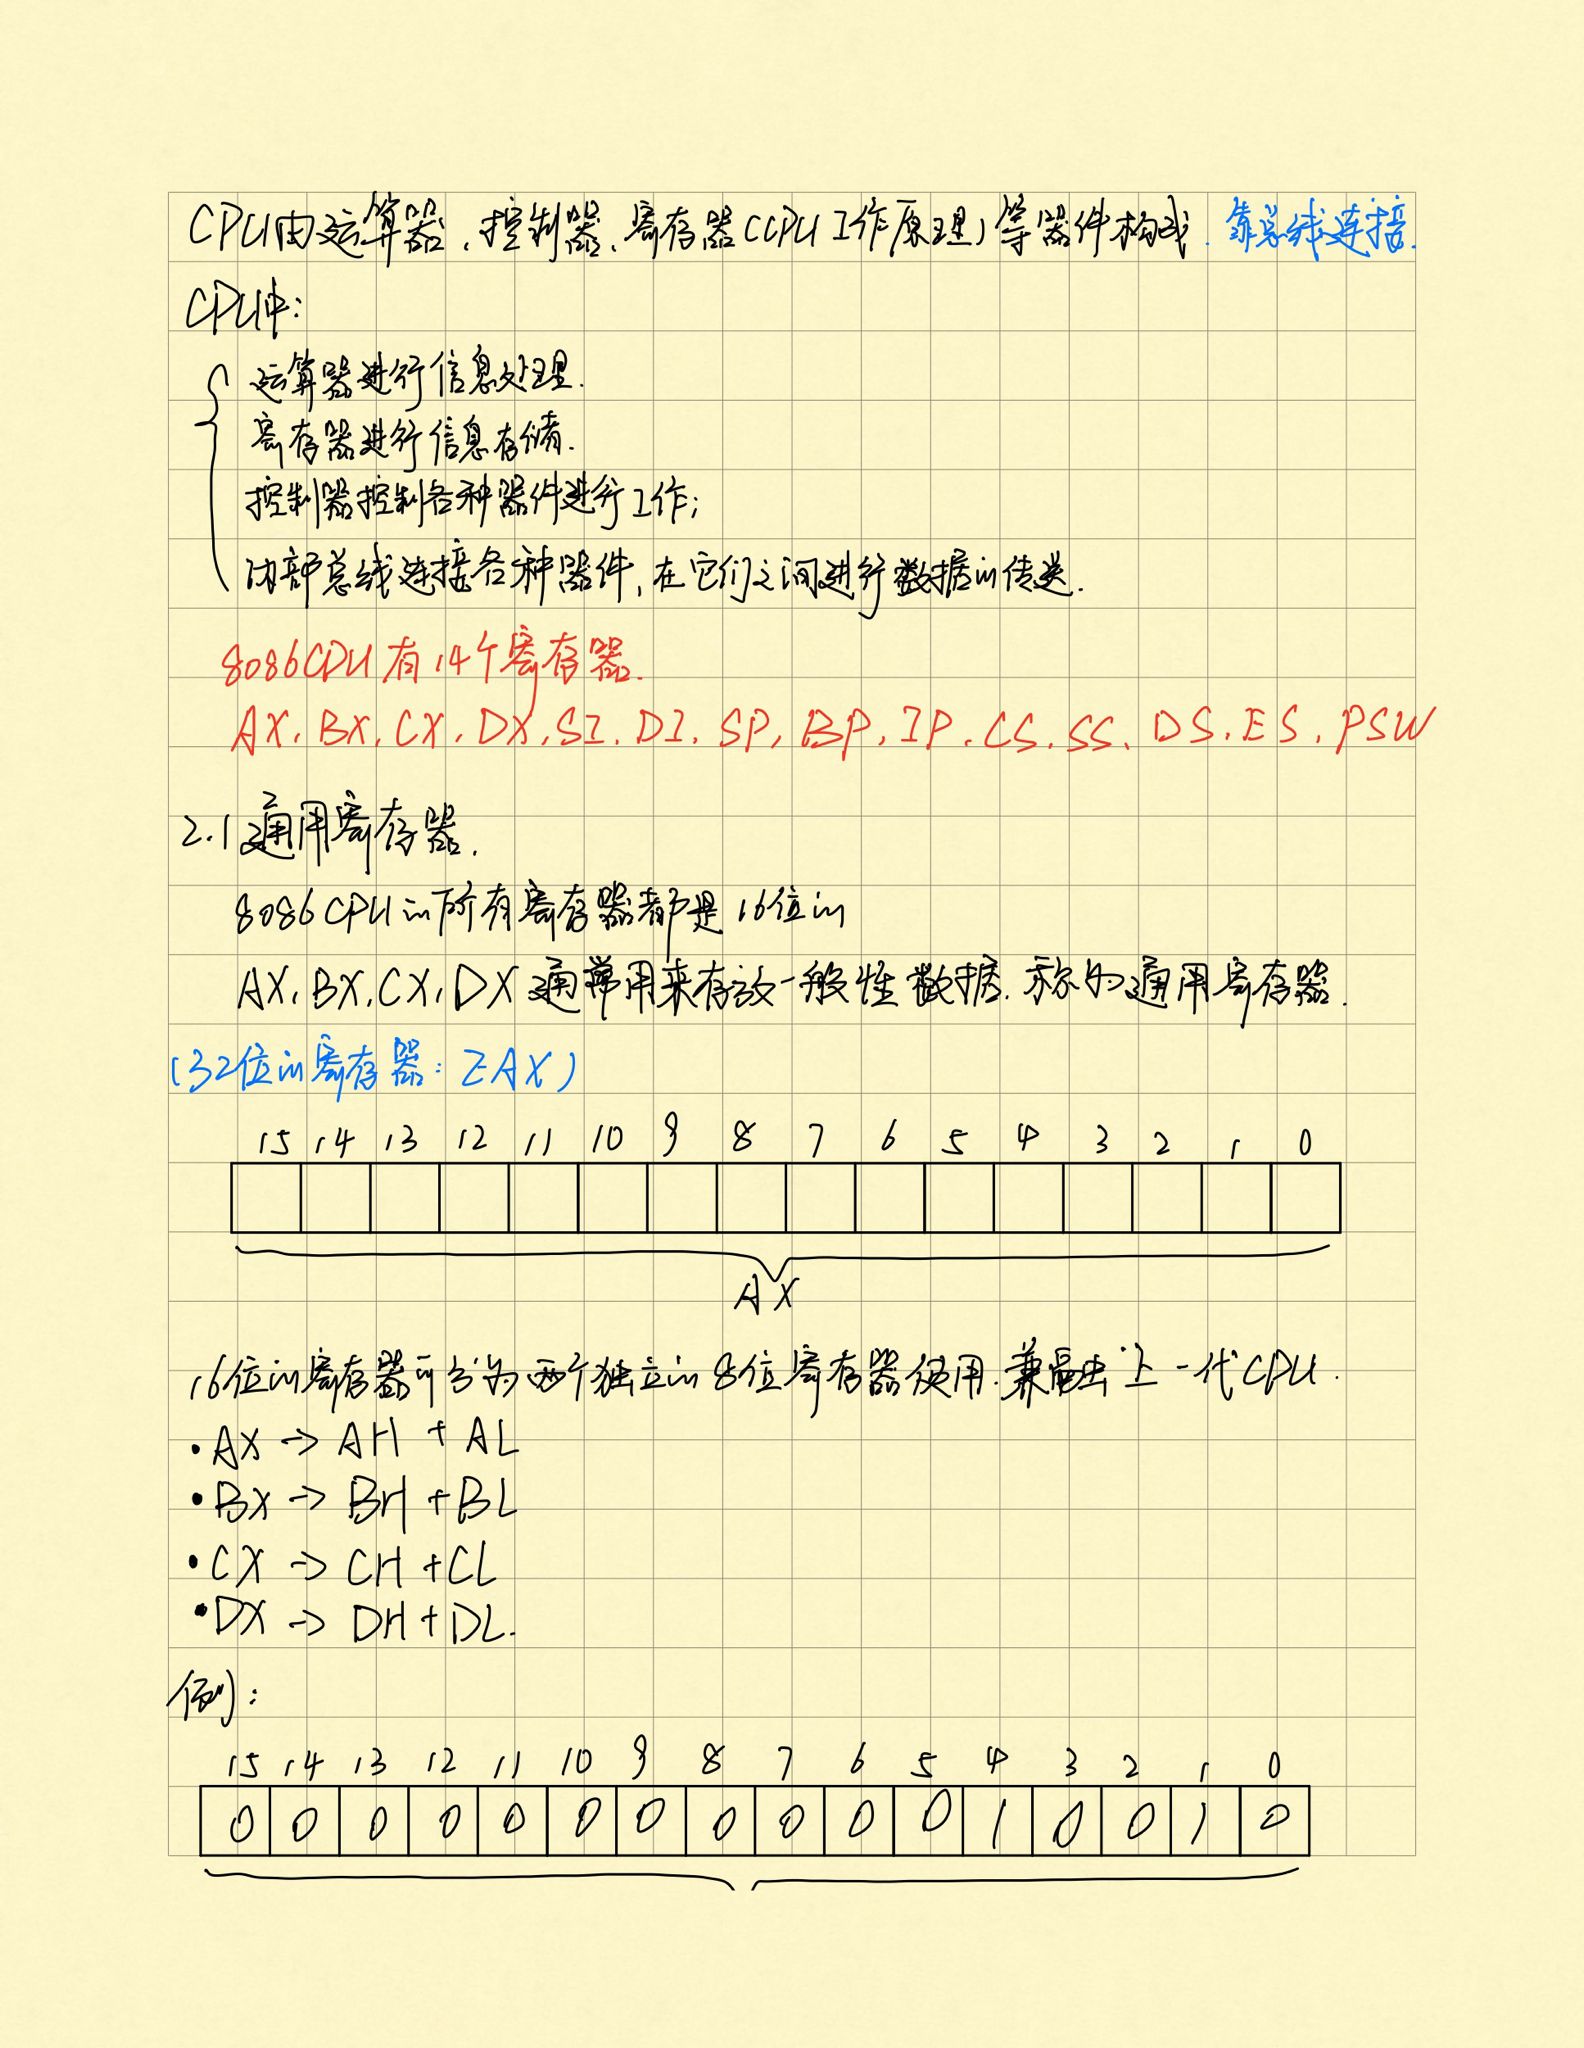 CPU由运算器、控制器、寄存器(CPU工作原理)等器件构成. 靠总线连接.
CPU中:
运算器进行信息处理.
寄存器进行信息存储.
控制器控制各种器件进行工作;
内部总线连接各种器件,在它们之间进行数据的传送.
8086CPU有14个寄存器.
AX、BX、CX、DX、SI、DI、SP、BP、IP、CS、SS、DS、ES、PSW
2.1通用寄存器.
8086CPU的所有寄存器都是16位的
AX、BX、CX、DX通常用来存放一般性数据.称为通用寄存器.
(32位的寄存器:EAX)
15 14 13 12 11 10 9 8 7 6 5 4 3 2 1 0
AX
16位的寄存器可分为两个独立的8位寄存器使用.兼 上一代CPU.
•AX→AH+AL
•BX→BH+BL
•CX→CH+CL
•DX→DH+DL.
例:
15 14 13 12 11 10 9 8 7 6 5 4 3 2 1 0
0 0 0 0 0 0 0 0 0 0 0 1 0 0 1 0